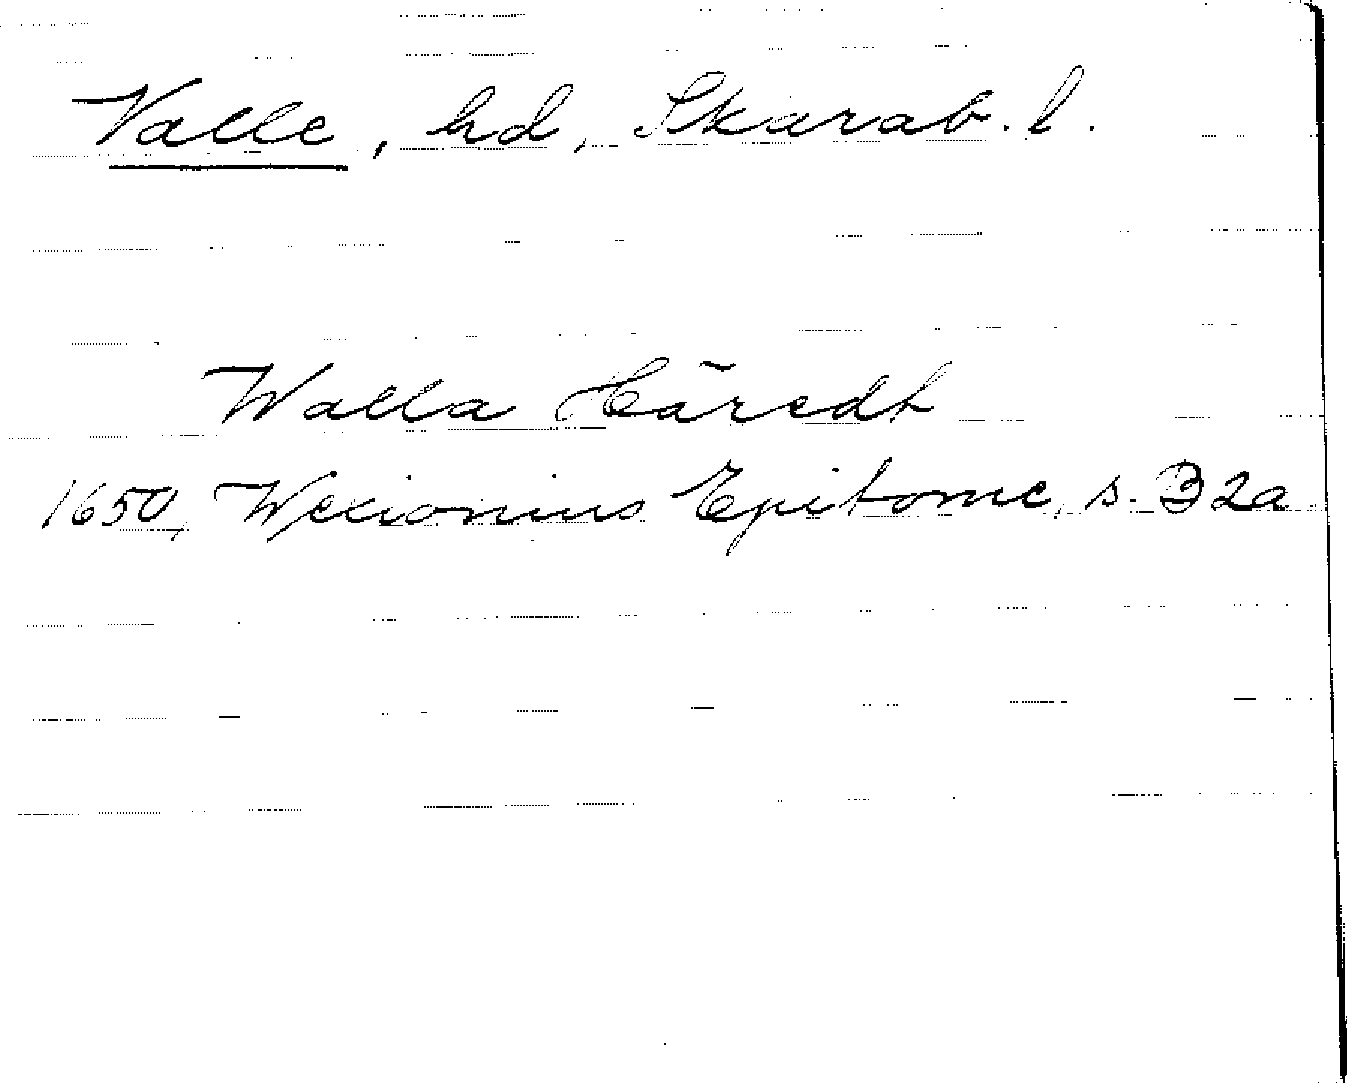 Valle, hd, Skarab. l.
Walla Häredt
1650, Wexionius Epitome, s. B2a